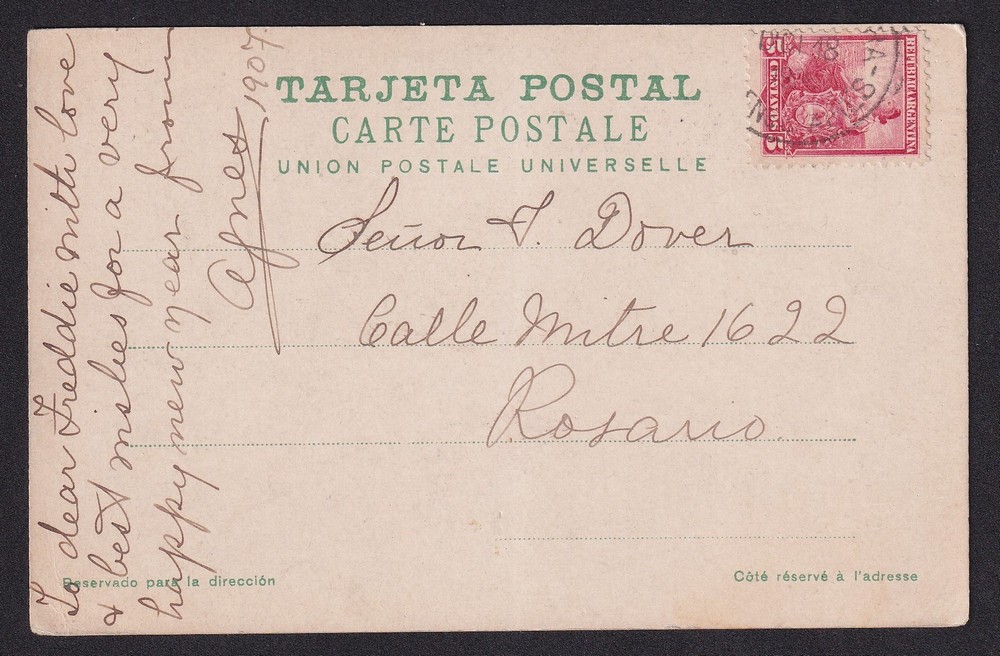 TARJETA POSTAL
CARTE POSTALE
UNION POSTALE UNIVERSELLE
REPUBLICA ARGENTINA
5 CENTAVOS 5
Señor F. Dover
Calle Mitre 1622
Rosario
To dear Freddie with love
& best wishes for a very
happy new year from
Agnes 1907
Reservado para la dirección
Côté réservé à l'adresse